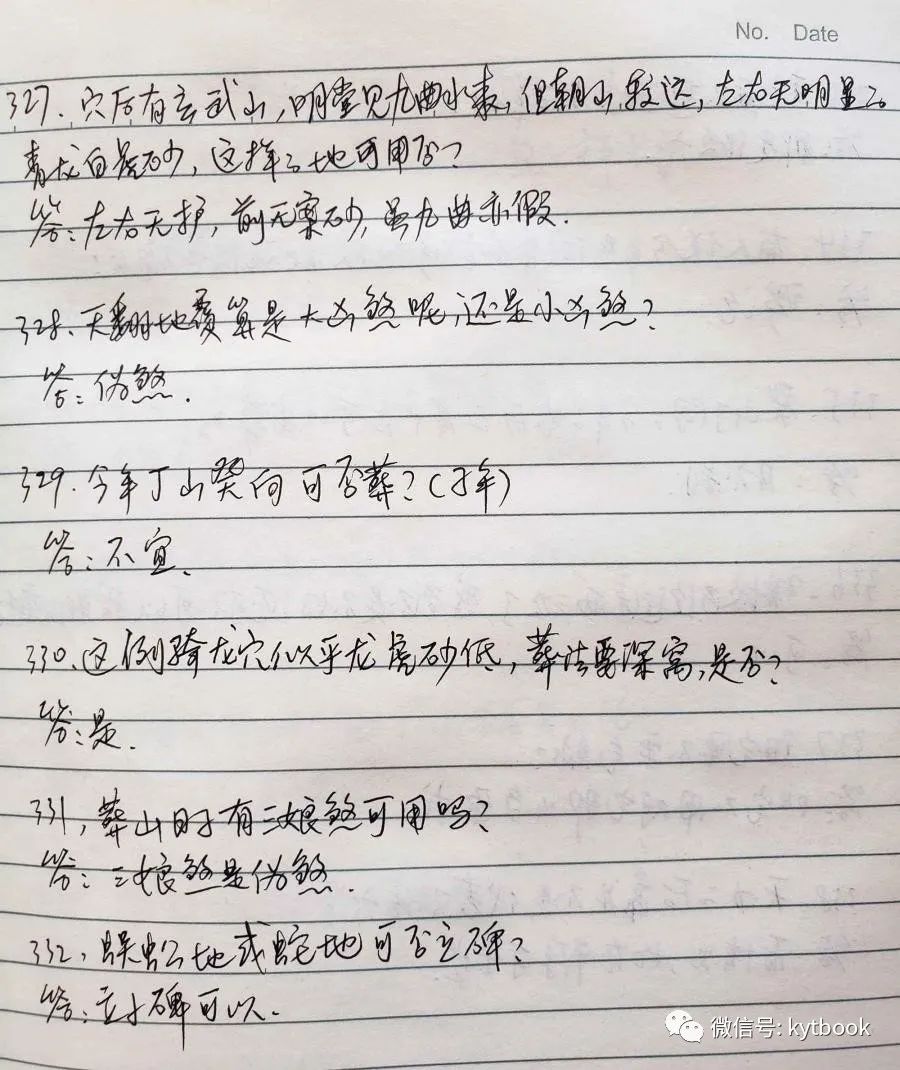 No. Date
327. 穴后有玄武山,明堂见九曲水来,但朝山较远,左右无明显之
青龙白虎砂,这样之地可用否?
答:左右无护,前无案砂,虽九曲亦假.
328、天翻地覆算是大凶煞呢,还是小凶煞?
答:伪煞.
329.今年丁山癸向可否葬?(子年)
答:不宜.
330、这例骑龙穴似乎龙虎砂低,葬法要深窝,是否?
答:是.
331,葬山日子有三娘煞可用吗?
答:三娘煞是伪煞.
332,蜈蚣地或蛇地可否立碑?
答:立小碑可以.
微信号: kytbook